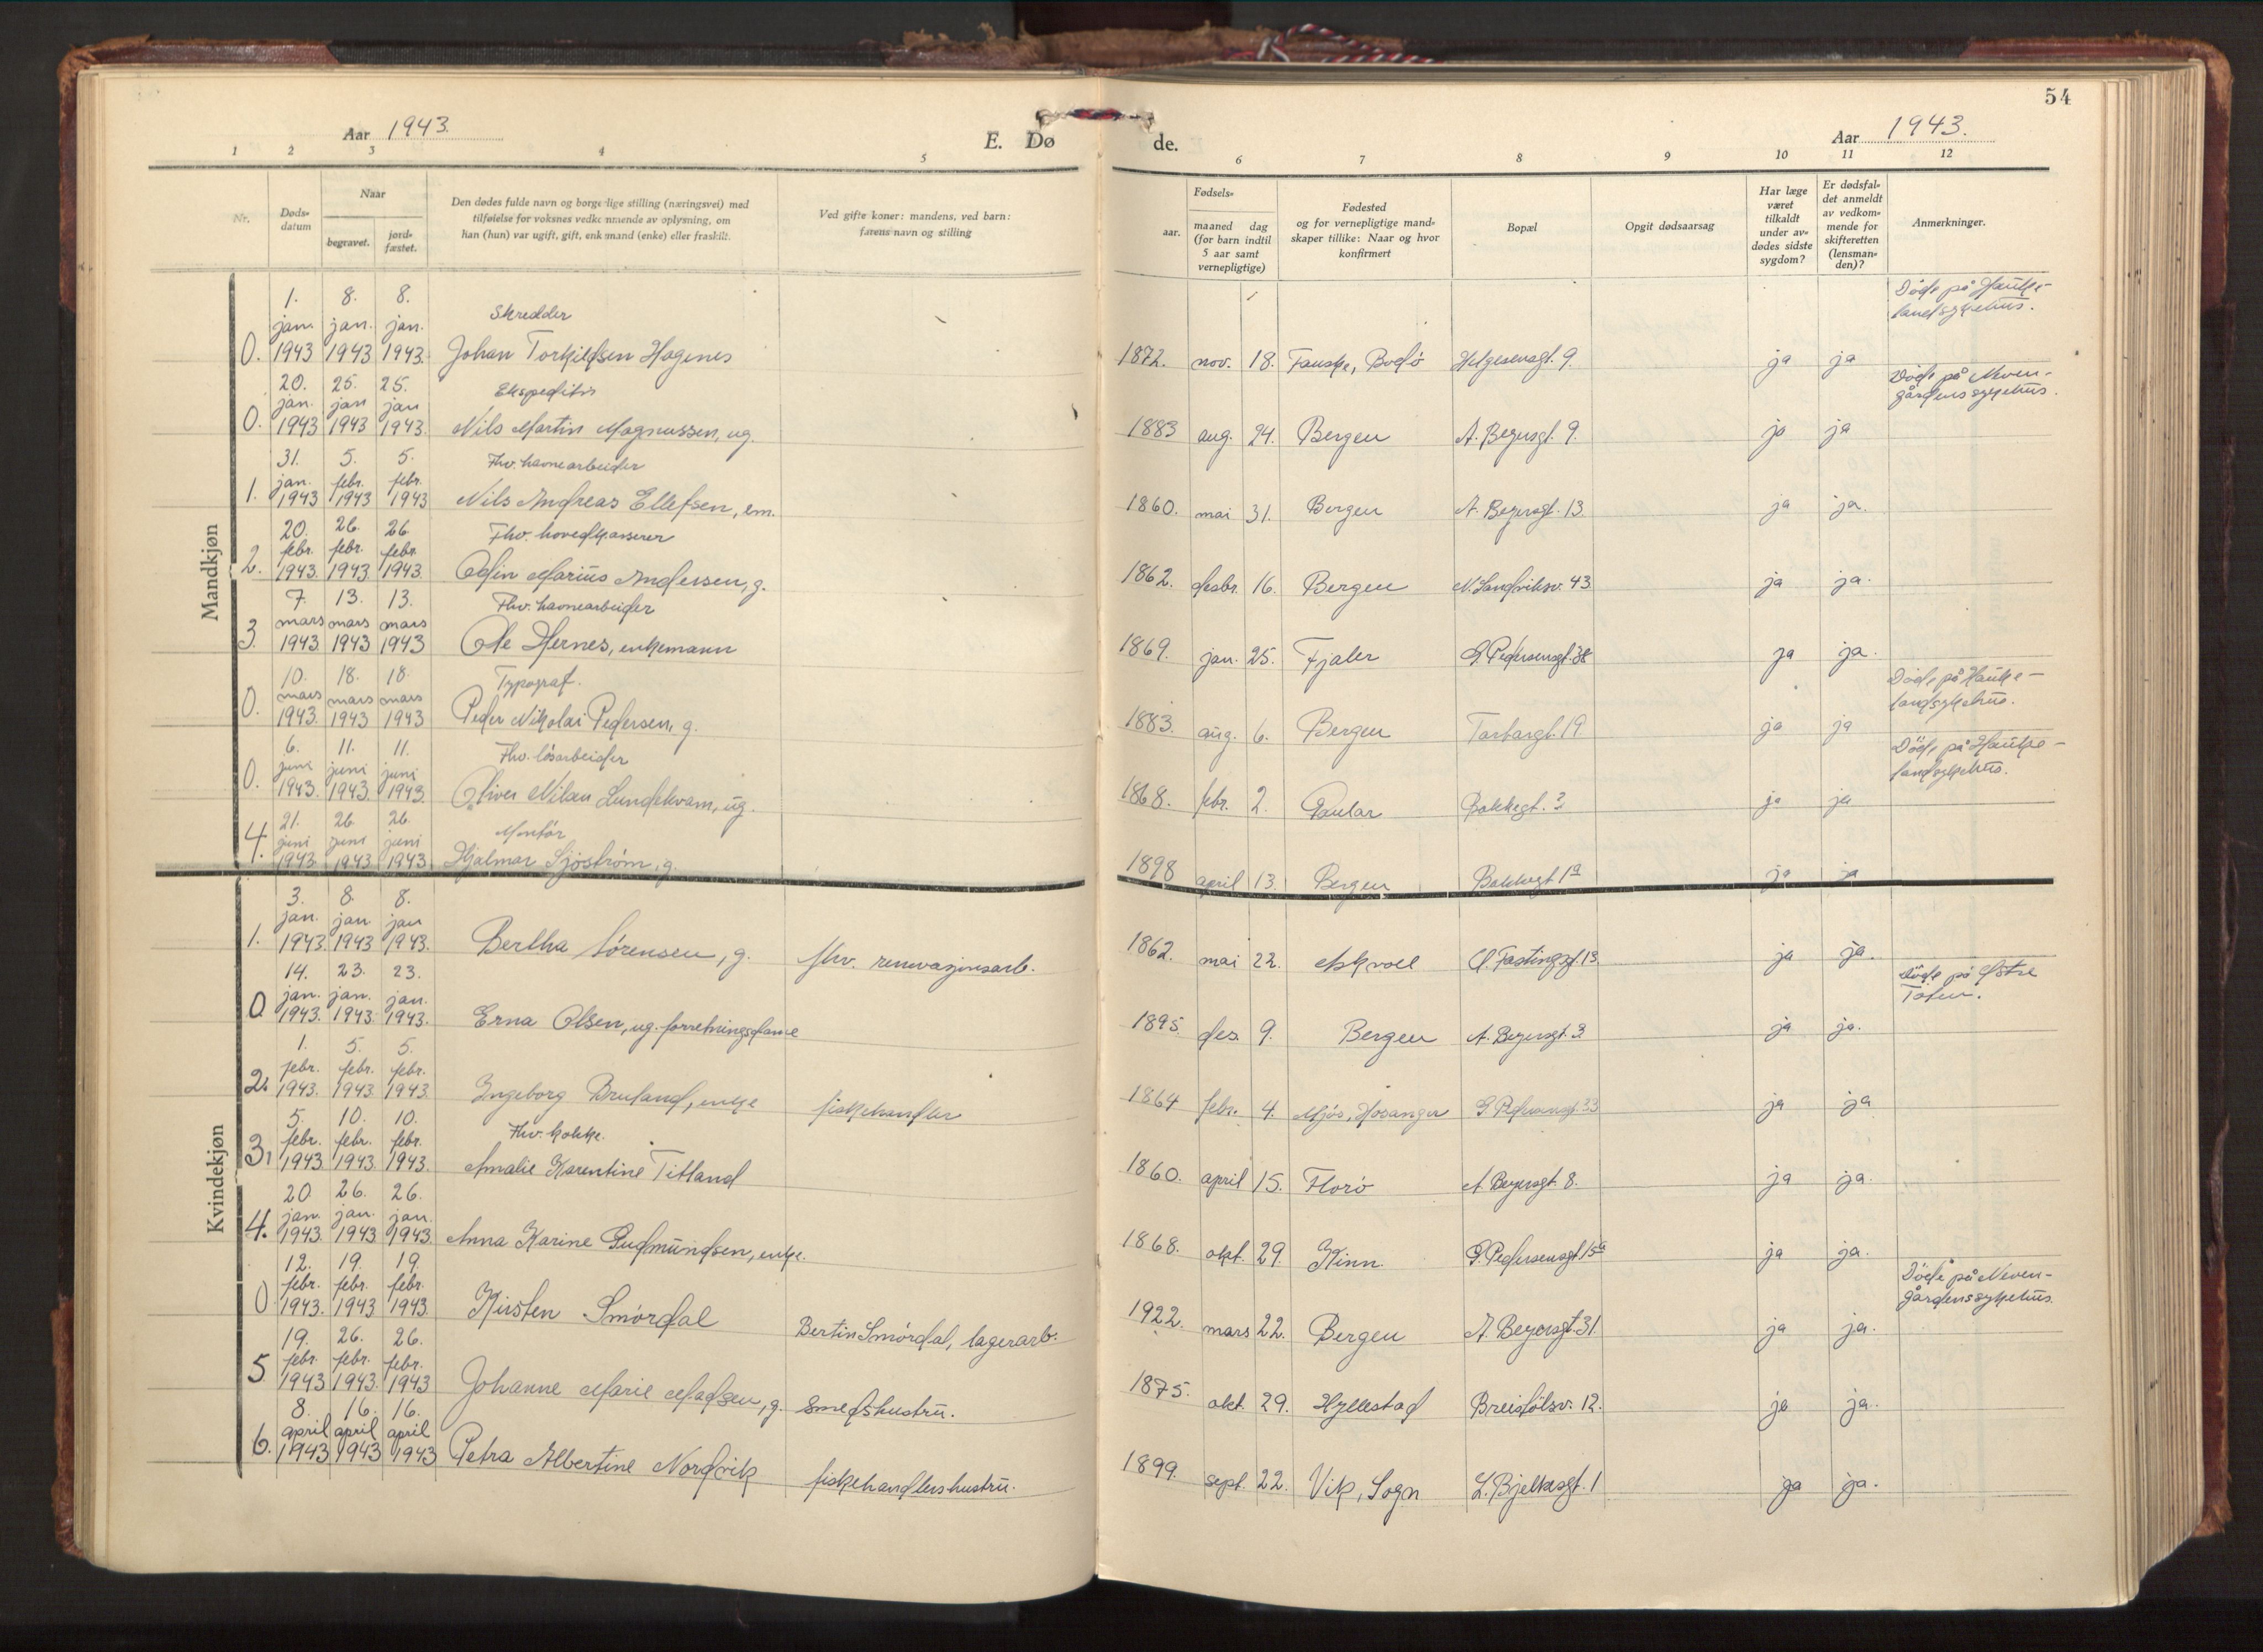 54
Aar 1943.
E. Dø
de.
Aar 1943.
1 2 3 4 5
6 7 8 9 10 11 12
Nr.
Døds-
datum
Naar
begravet.
jord-
fæstet.
Den dødes fulde navn og borgerlige stilling (næringsvei) med
tilføielse for voksnes vedkommende av oplysning, om
han (hun) var ugift, gift, enkemand (enke) eller fraskilt.
Ved gifte koner: mandens, ved barn:
farens navn og stilling
Fødsels-
aar.
maaned dag
(for barn indtil
5 aar samt
vernepligtige)
Fødested
og for vernepligtige mand-
skaper tillike: Naar og hvor
konfirmert
Bopæl
Opgit dødsaarsag
Har læge
været
tilkaldt
under av-
dødes sidste
sygdom?
Er dødsfal-
det anmeldt
av vedkom-
mende for
skifteretten
(lensman-
den)?
Anmerkninger.
Mandkjøn
1. 8. 8. Skredder Døde på Hauke-
jan. jan. jan. landsykehus.
0. 1943 1943 1943. Johan Torkildsen Hagenes 1872. nov. 18. Fauske, Bodø Helgesensgt. 9. ja ja
20. 25. 25. Ekspeditør Døde på Neven-
jan. jan jan gårdens sykehus.
0. 1943 1943 1943. Nils Martin Magnussen, ug. 1883 aug. 24. Bergen A. Beyersgt. 9. ja ja
31. 5. 5. Fhv. havnearbeider
jan. febr. febr.
1. 1943 1943 1943 Nils Andreas Ellefsen, em. 1860. mai 31. Bergen A. Beyersgt. 13. ja ja.
20. 26. 26 Fhv. hovedkasserer
febr. febr. febr.
2. 1943. 1943. 1943. Odin Marius Andersen, g. 1862. desbr. 16. Bergen N. Sandviksv. 43 ja ja.
7. 13. 13. Fhv. havnearbeider
mars mars mars
3. 1943. 1943 1943 Ole Hernes, enkemann 1869. jan. 25. Fjaler G. Pedersensgt. 38 ja ja.
10. 18. 18. Typograf. Døde på Hauke-
mars mars mars landsykehus.
0. 1943. 1943 1943 Peder Nikolai Pedersen, g. 1883. aug. 6. Bergen Tartargt. 19. ja ja
6. 11. 11. Fhv. løsarbeider Døde på Hauke-
juni juni juni landsykehus.
0. 1943. 1943. 1943. Oliver Nilsen Lundekvam, ug. 1868. febr. 2. Gaular Bakkegt. ja ja
21. 26 26. Montør
juni juni juni
4. 1943. 1943 1943 Hjalmar Sjøstrøm, g. 1898 april 13. Bergen Bakkegt 1a ja ja
Kvindekjøn
3. 8. 8.
jan. jan. jan
1. 1943. 1943 1943. Bertha Sørensen, g. fhv. renovasjonsarb. 1862. mai 22. Askvoll C. Fastingsgt. 13. ja ja.
14. 23. 23. Døde på Østre
jan. jan. jan. Toten.
0 1943. 1943. 1943. Erna Olsen, ug. forretningsdame 1895. des. 9. Bergen A. Beyersgt. 3 ja ja.
1. 5. 5.
febr. febr. febr.
2. 1943. 1943 1943. Ingeborg Bruland, enke fiskehandler 1864 febr. 4. Mjøs, Hosanger G. Pedersensgt. 33 ja ja
5. 10. 10. Fhv. kokke.
febr. febr. febr.
3. 1943. 1943. 1943. Amalie Karentine Titland 1860. april 15. Florø A Beyersgt. 8. ja ja.
20 26. 26.
jan. jan. jan.
4. 1943. 1943 1943. Anna Karine Gudmundsen, enke. 1868. okt. 29. Kinn. G. Pedersensgt. 15a ja ja.
12. 19. 19. Døde på Neven-
febr. febr. febr. gårdens sykehus.
0 1943. 1943 1943. Kirsten Smørdal Bertin Smørdal, lagerarb. 1922. mars 22. Bergen A. Beyersgt. 31. ja ja.
19. 26. 26.
febr. febr. febr.
5 1943 1943. 1943 Johanne Marie Madsen, g. Smedshustru. 1875. okt. 29. Hyllestad Breistølsv. 12. ja ja.
8. 16. 16.
april april april
6. 1943 1943 1943 Petra Albertine Nordvik fiskehandlershustru. 1899. sept. 22. Vik, Sogn L. Bjelkesgt. 1 ja ja.